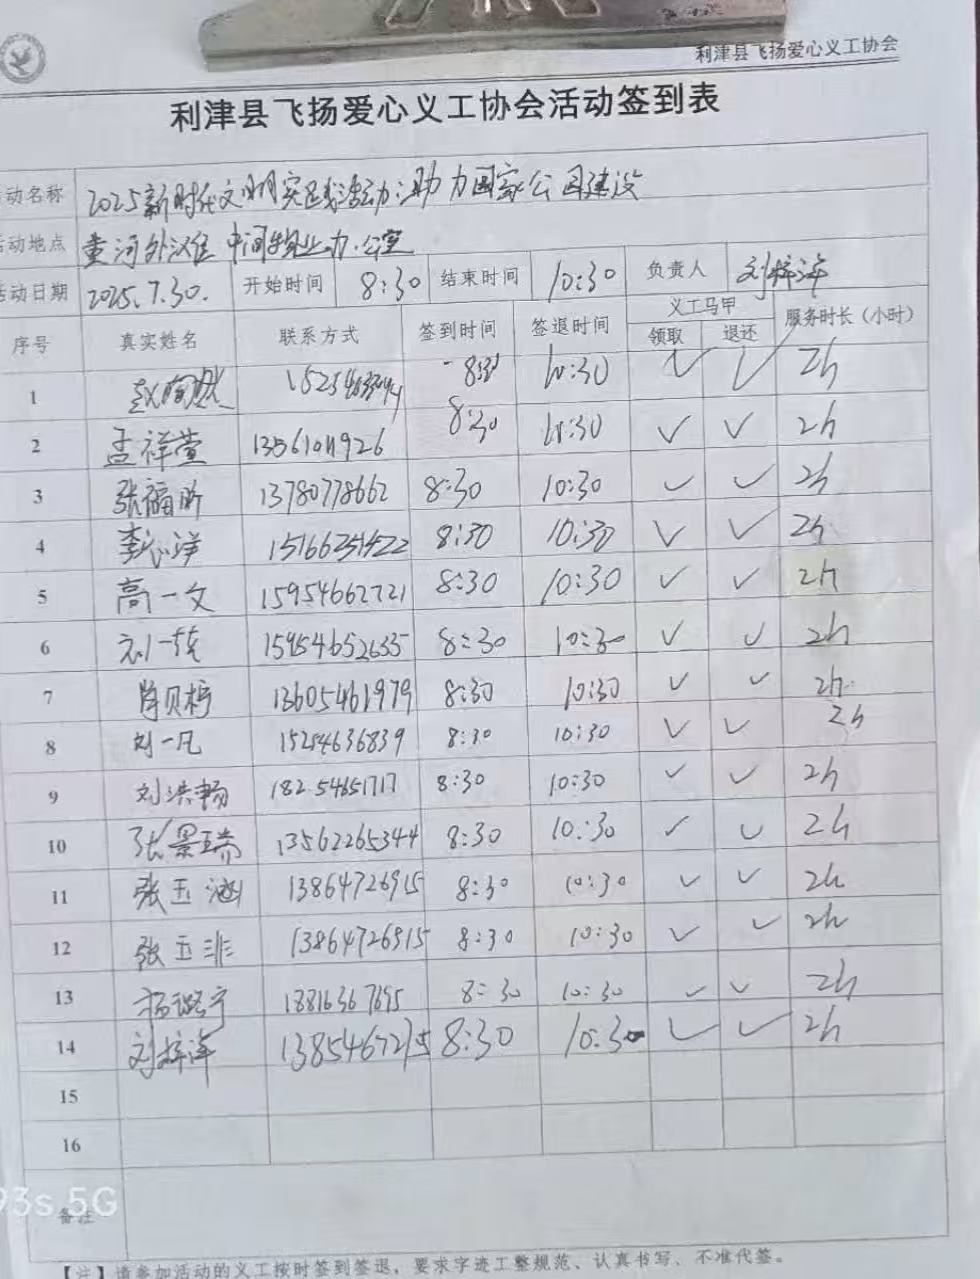 利津县飞扬爱心义工协会
利津县飞扬爱心义工协会活动签到表
动名称 2025新时代文明实践活动:助力国家公园建设
活动地点 黄河外滩 中间物业办公室
活动日期 2025.7.30. 开始时间 8:30 结束时间 10:30 负责人 刘梓洋
序号 真实姓名 联系方式 签到时间 签退时间 义工马甲 服务时长（小时）
领取 退还
1 8:30 10:30 ✓ ✓ 2h
2 孟祥萱 10:30 ✓ ✓ 2h
8:30
3 张福昕 13780778662 8:30 10:30 ✓ ✓ 2h
4 李沁洋 15166251422 8:30 10:30 ✓ ✓ 2h
5 高一文 15954662721 8:30 10:30 ✓ ✓ 2h
6 15954652635 8:30 10:30 ✓ ✓ 2h
7 肖贝柠 13605461979 8:30 10:30 ✓ ✓ 2h
8 刘一凡 15254636839 8:30 10:30 ✓ ✓ 2h
9 刘洪畅 18254651717 8:30 10:30 ✓ ✓ 2h
10 张景瑞 13562265344 8:30 10:30 ✓ ✓ 2h
11 张玉涵 13864726915 8:30 10:30 ✓ ✓ 2h
12 张玉非 13864726915 8:30 10:30 ✓ ✓ 2h
13 8:30 10:30 ✓ ✓ 2h
14 刘梓洋 8:30 10:30 ✓ ✓ 2h
15
16
93s 5G
备注
【注】请参加活动的义工按时签到签退，要求字迹工整规范、认真书写、不准代签。